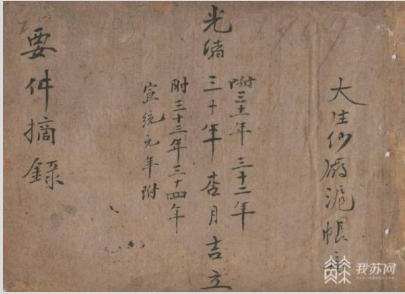 大生沙厰滬帳
附三十一年 三十二年
光緒三十年杏月吉立
附三十三年三十四年
宣統元年附
要件摘錄
我苏网